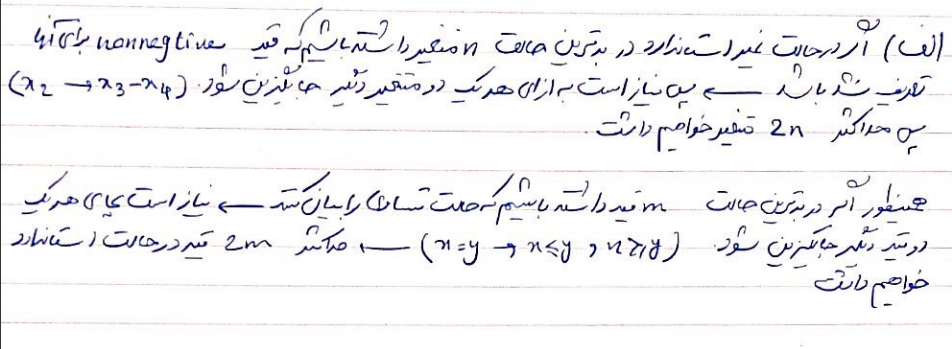 الف) اگر در حالت غیر استاندارد در بدترین حالت n متغیر داشته باشیم که قید nonnegtive برای آنها
تعریف نشده باشد ← پس نیاز است به ازای هر یک دو متغیر دیگر جایگزین شود. (x₂ → x₃-x₄)
پس حداکثر 2n متغیر خواهیم داشت.
همینطور اگر در بدترین حالت m قید داشته باشیم که حالت تساوی را بیان کند ← نیاز است بجای هر یک
دو قید دیگر جایگزین شود. (x=y → x≤y , x≥y) ← حداکثر 2m قید در حالت استاندارد
خواهیم داشت